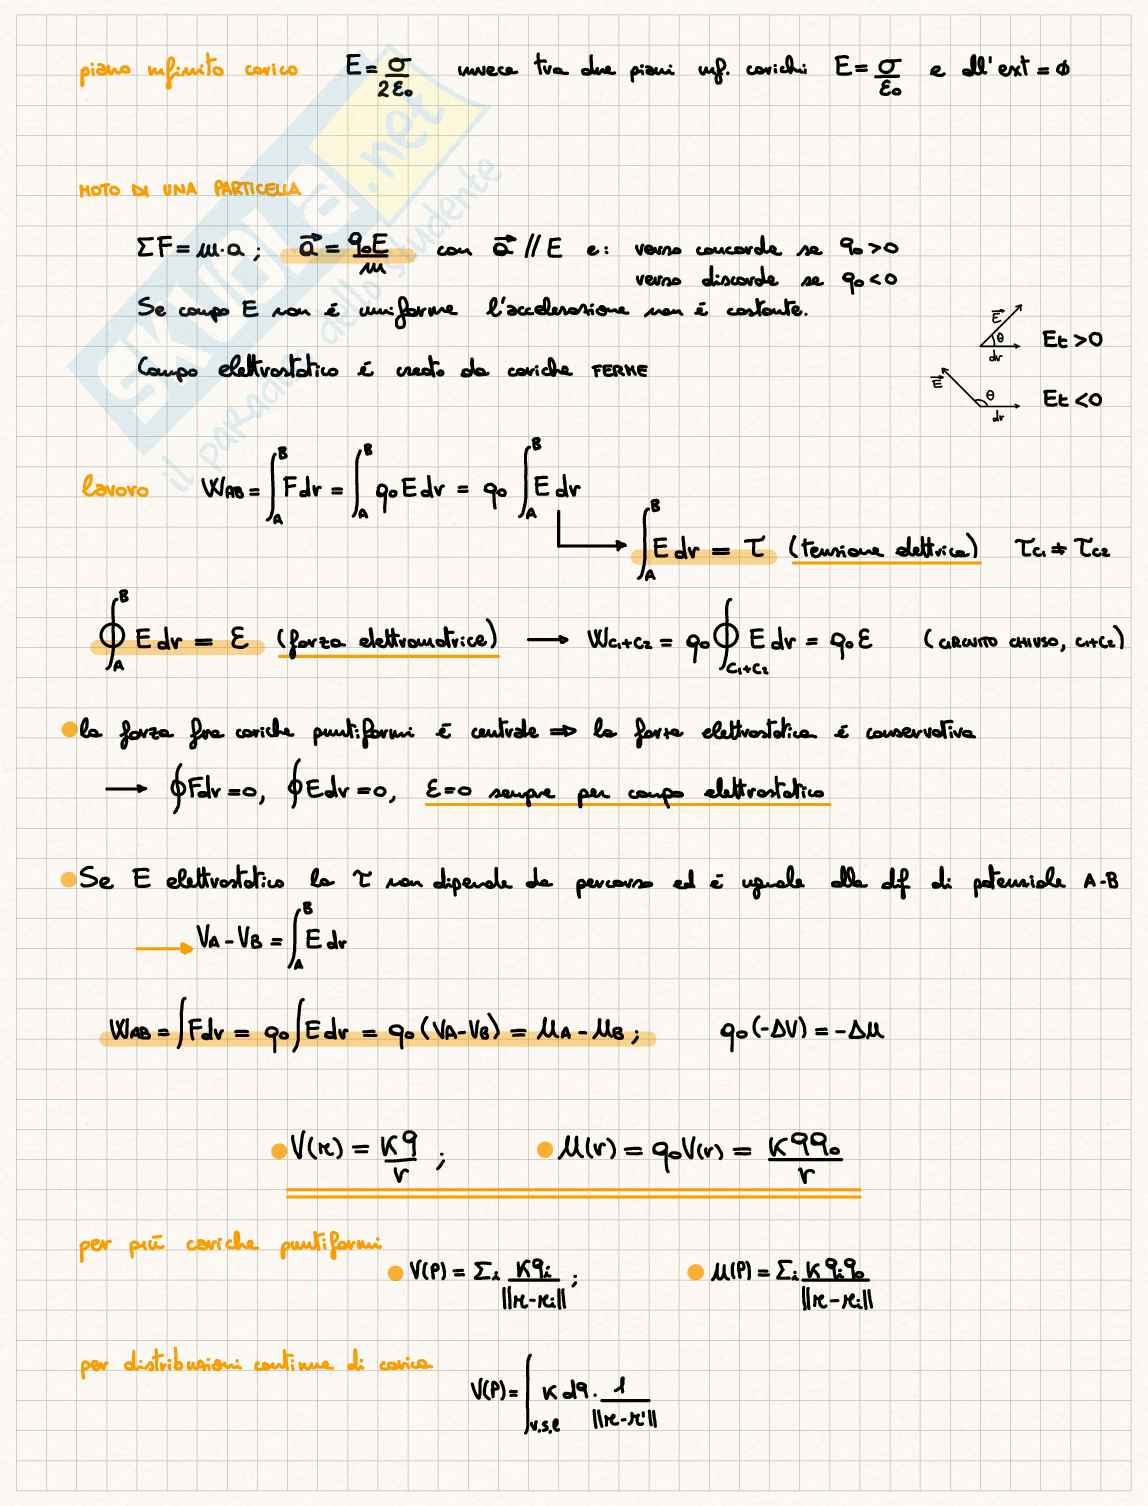 piano infinito carico E = σ/2ε₀ invece tra due piani inf. carichi E = σ/ε₀ e all'ext = ϕ
MOTO DI UNA PARTICELLA
ΣF = m·a ; a⃗ = q₀E/m con a⃗ // E e: verso concorde se q₀ > 0
verso discorde se q₀ < 0
Se campo E non è uniforme l'accelerazione non è costante.
E⃗ θ dr Et > 0
Campo elettrostatico è creato da cariche FERME
E⃗ θ dr Et < 0
lavoro W_AB = ∫_A^B F dr = ∫_A^B q₀ E dr = q₀ ∫_A^B E dr
∫_A^B E dr = τ (tensione elettrica) τ_C1 ≠ τ_C2
∮_A^B E dr = ε (forza elettromotrice) → W_C1+C2 = q₀ ∮_C1+C2 E dr = q₀ε (CIRCUITO CHIUSO, C1+C2)
• la forza fra cariche puntiformi è centrale ⇒ la forza elettrostatica è conservativa
→ ∮Fdr = 0, ∮Edr = 0, ε=0 sempre per campo elettrostatico
• Se E elettrostatico la τ non dipende da percorso ed è uguale alla dif di potenziale A-B
→ V_A - V_B = ∫_A^B E dr
W_AB = ∫Fdr = q₀∫Edr = q₀(V_A-V_B) = U_A - U_B ; q₀(-ΔV) = -ΔU
• V(r) = Kq/r ; • U(r) = q₀V(r) = Kqq₀/r
per più cariche puntiformi
• V(P) = Σi Kqi/||r-ri|| ; • U(P) = Σi Kqiq₀/||r-ri||
per distribuzioni continue di carica
V(P) = ∫_v,s,l K dq · 1/||r-r'||
SKUOLA.net
il paradiso dello studente